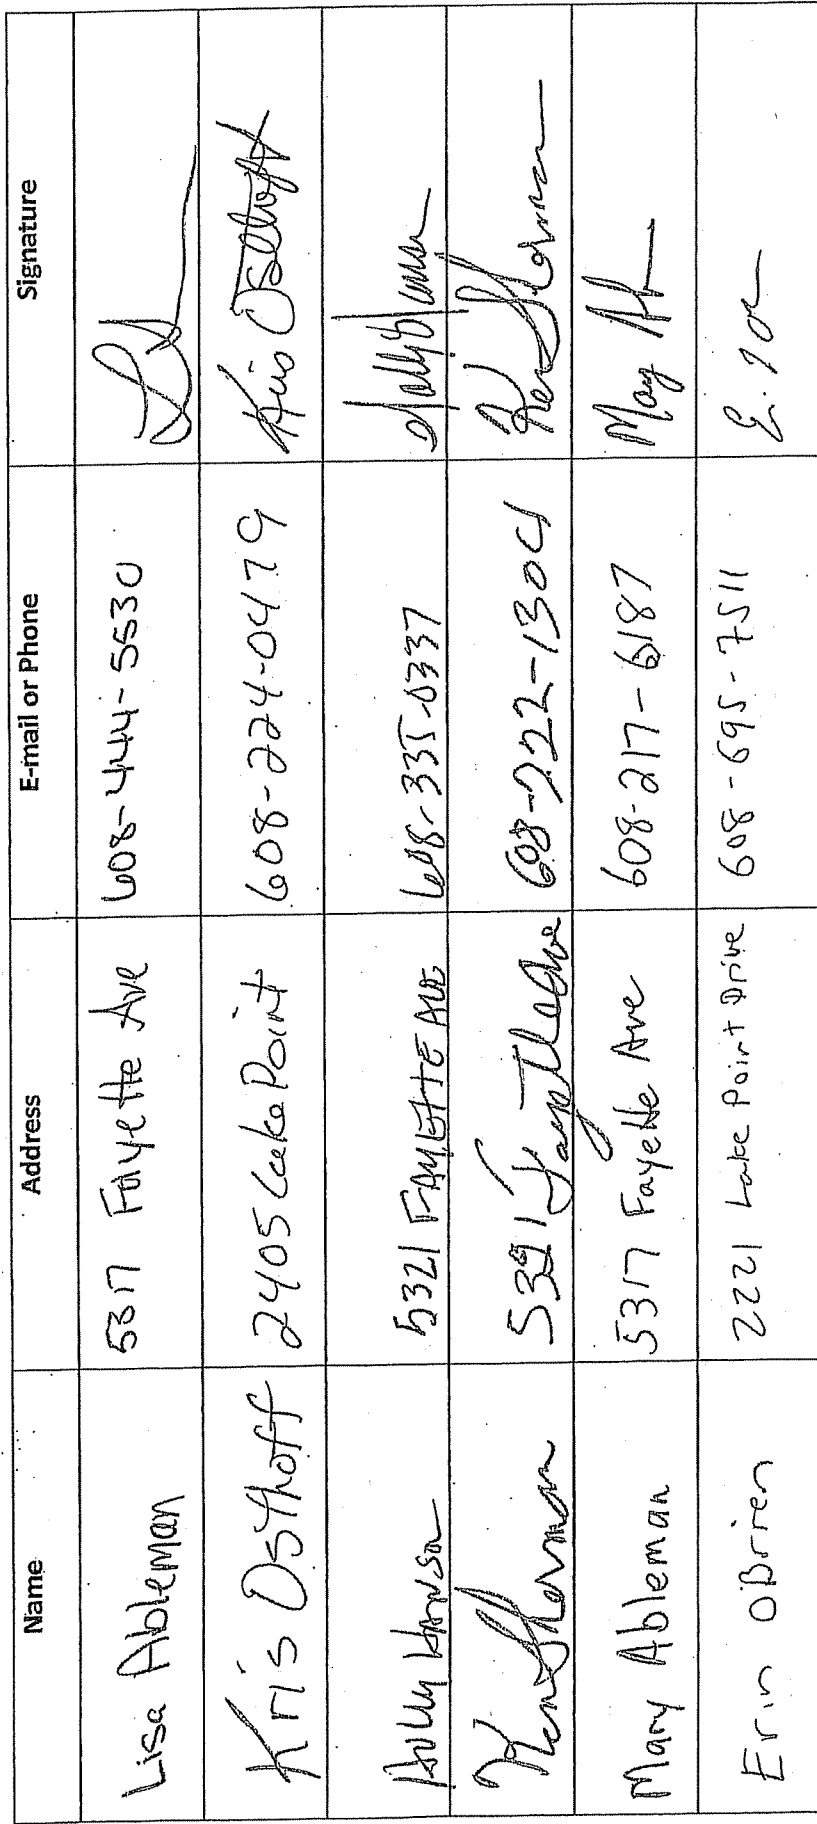 Name Address E-mail or Phone Signature
Lisa Ableman 5317 Fayette Ave 608-444-5530
Kris Osthoff 2405 Lake Point 608-224-0479 Kris Osthoff
Holly Hanson 5321 FAYETTE AVE 608-335-0337
Ken Sherman 5321 Fayette Ave 608-222-1304 Ken Sherman
Mary Ableman 5317 Fayette Ave 608-217-6187
Erin OBrien 2221 Lake Point Drive 608-695-7511